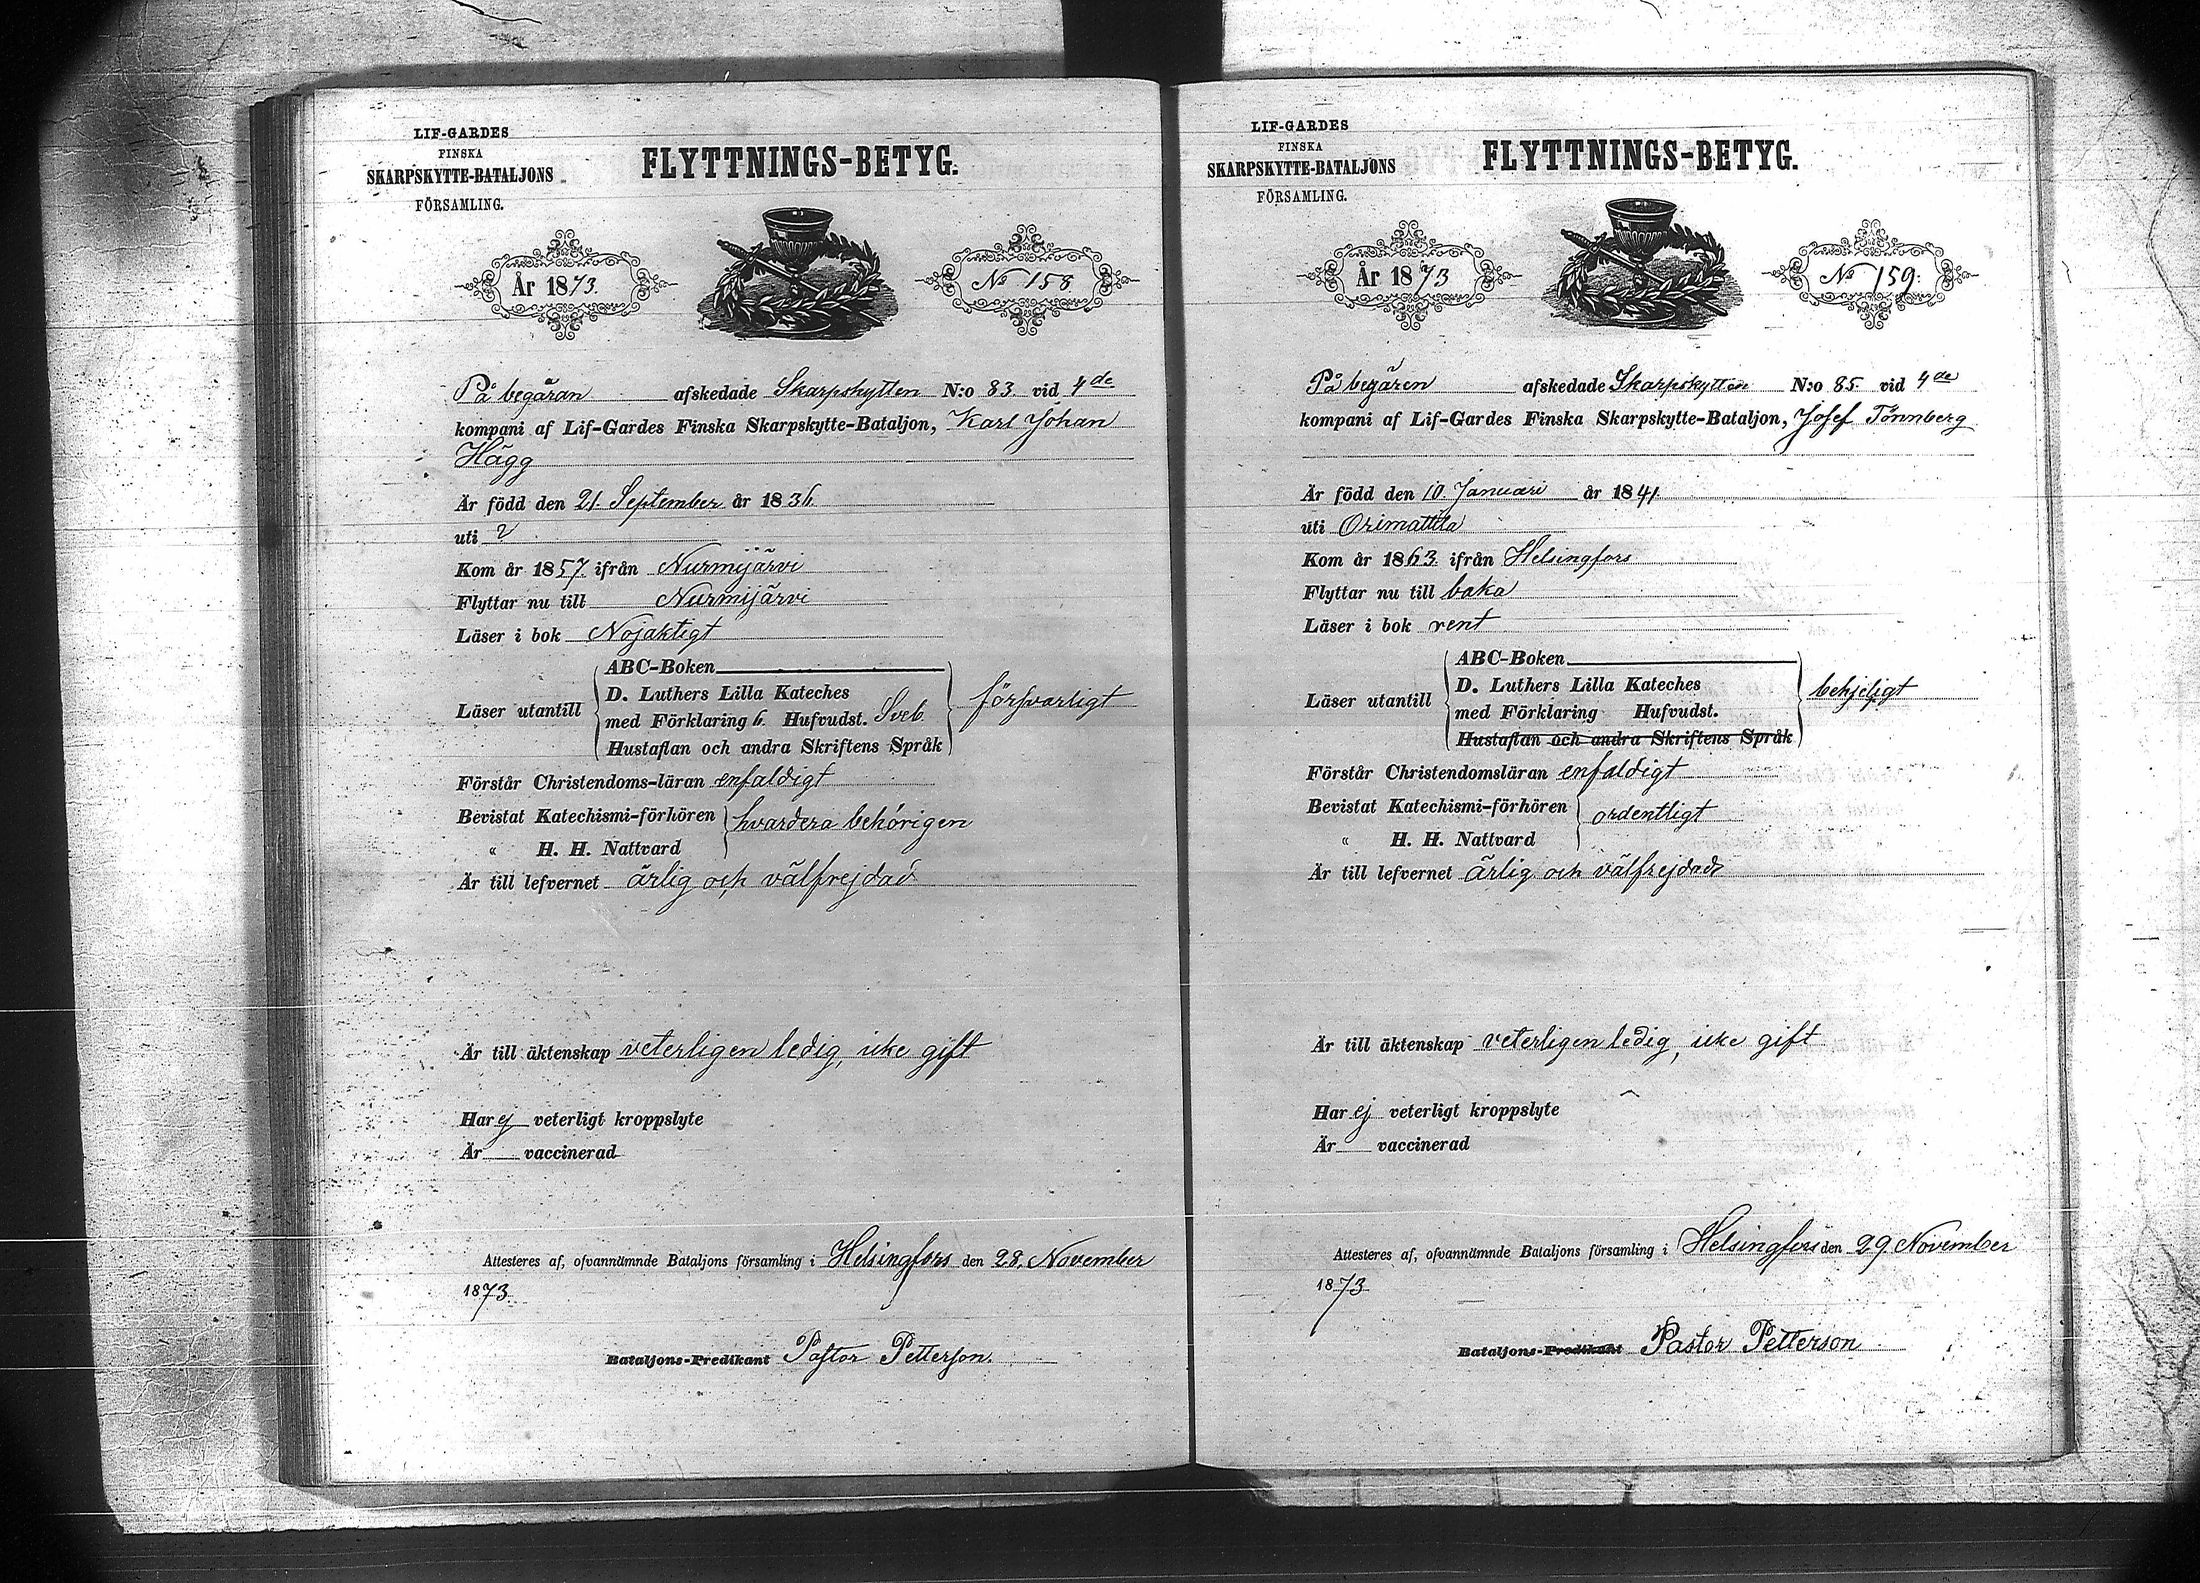 LIF-GARDES
FINSKA
SKARPSKYTTE-BATALJONS
FÖRSAMLING.
FLYTTNINGS-BETYG.
År 1873.
No 158
På begäran afskedade Skarpskytten N:o 83. vid 4de
kompani af Lif-Gardes Finska Skarpskytte-Bataljon, Karl Johan
Hägg
Är född den 21. September år 1836.
uti ?
Kom år 1857. ifrån Nurmijärvi
Flyttar nu till Nurmijärvi
Läser i bok Nojaktigt
ABC-Boken
D. Luthers Lilla Kateches
Läser utantill med Förklaring 6. Hufvudst. Sveb. försvarligt
Hustaflan och andra Skriftens Språk
Förstår Christendoms-läran enfaldigt
Bevistat Katechismi-förhören hvardera behörigen
« H. H. Nattvard
Är till lefvernet ärlig och välfrejdad
Är till äktenskap veterligen ledig, icke gift
Har ej veterligt kroppslyte
Är vaccinerad
Attesteres af, ofvannämnde Bataljons församling i Helsingfors den 28. November
1873.
Bataljons-Predikant Pastor Petterson.
LIF-GARDES
FINSKA
SKARPSKYTTE-BATALJONS
FÖRSAMLING.
FLYTTNINGS-BETYG.
År 1873
No 159.
På begären afskedade Skarpskytten N:o 85. vid 4de
kompani af Lif-Gardes Finska Skarpskytte-Bataljon, Josef Tönnberg
Är född den 10. Januari år 1841.
uti Orimattila
Kom år 1863. ifrån Helsingfors
Flyttar nu till baka
Läser i bok rent
ABC-Boken
D. Luthers Lilla Kateches
Läser utantill med Förklaring Hufvudst. behjeligt
Hustaflan och andra Skriftens Språk
Förstår Christendomsläran enfaldigt
Bevistat Katechismi-förhören ordentligt
« H. H. Nattvard
Är till lefvernet ärlig och välfrejdad
Är till äktenskap veterligen ledig, icke gift
Har ej veterligt kroppslyte
Är vaccinerad
Attesteres af, ofvannämnde Bataljons församling i Helsingfors den 29. November
1873
Bataljons-Predikant Pastor Petterson